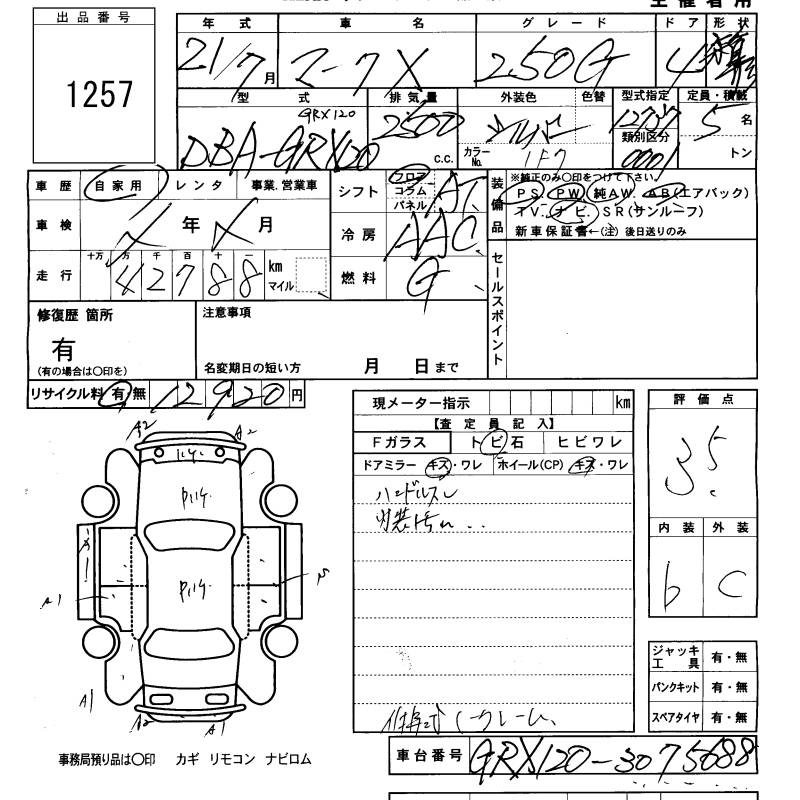 出品番号
1257
年式 車名 グレード ドア 形状
21/7月 マークX 250G 4
型式 排気量 外装色 色替 型式指定 定員・積載
GRX120
DBA-GRX120 2500 c.c. シルバー カラーNo. 1F7 類別区分 0001 5名
トン
車歴 自家用 レンタ 事業.営業車 シフト フロア コラム パネル AT
装備品 ※純正のみ〇印をつけて下さい。
PS. PW 純AW. AB(エアバック)
TV. ナビ. SR(サンルーフ)
新車保証書←(注) 後日送りのみ
車検 年 月 冷房 AAC
走行 十万 万 千 百 十 一
42788 km マイル 燃料 G
セールスポイント
修復歴 箇所 注意事項
有
(有の場合は〇印を) 名変期日の短い方 月 日まで
リサイクル料 有 無 12920円
現メーター指示 km
【査定員記入】
Fガラス トビ石 ヒビワレ
ドアミラー キズ・ワレ ホイール(CP) キズ・ワレ
ハンドルスレ
内装汚れ
評価点
3.5
内装 外装
b C
A2 A2
P.ハゲ.
P.ハゲ.
A1
A1 A2 A1
ジャッキ工具 有・無
パンクキット 有・無
スペアタイヤ 有・無
事務局預り品は〇印 カギ リモコン ナビロム
車台番号 GRX120-3075688